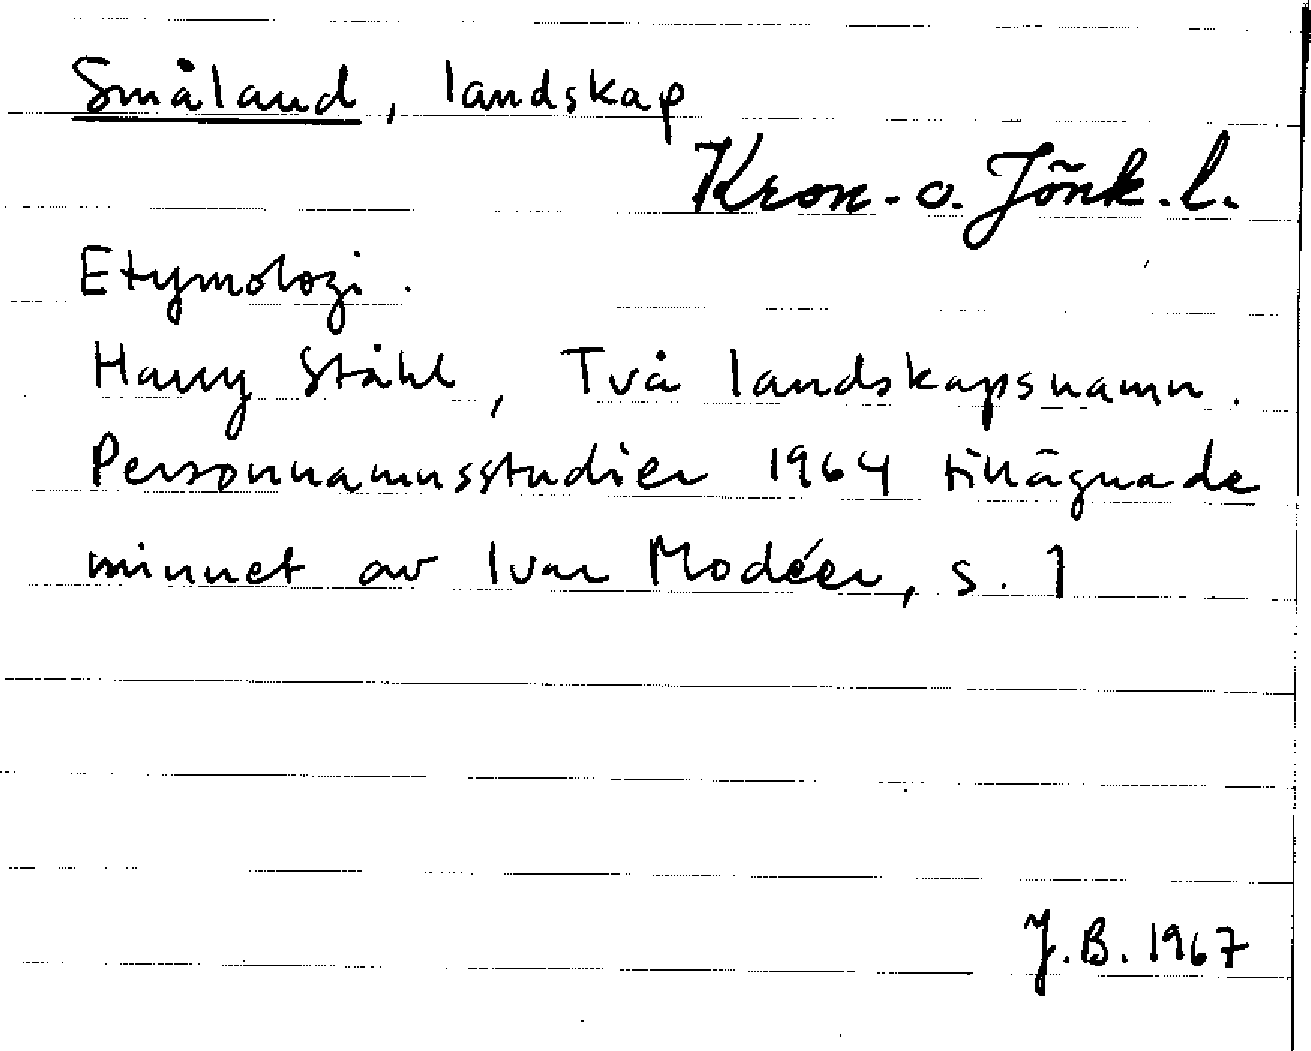 Småland, landskap
Kron. o. Jönk. l.
Etymologi.
Harry Ståhl, Två landskapsnamn.
Personnamnsstudier 1964 tillägnade
minnet av Ivar Modéer, s. 1
J.B. 1967